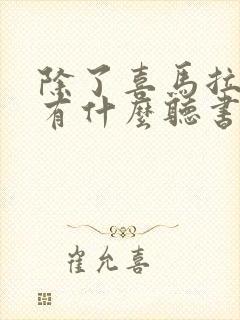 除了喜馬拉
有什麼聽書
崔允喜